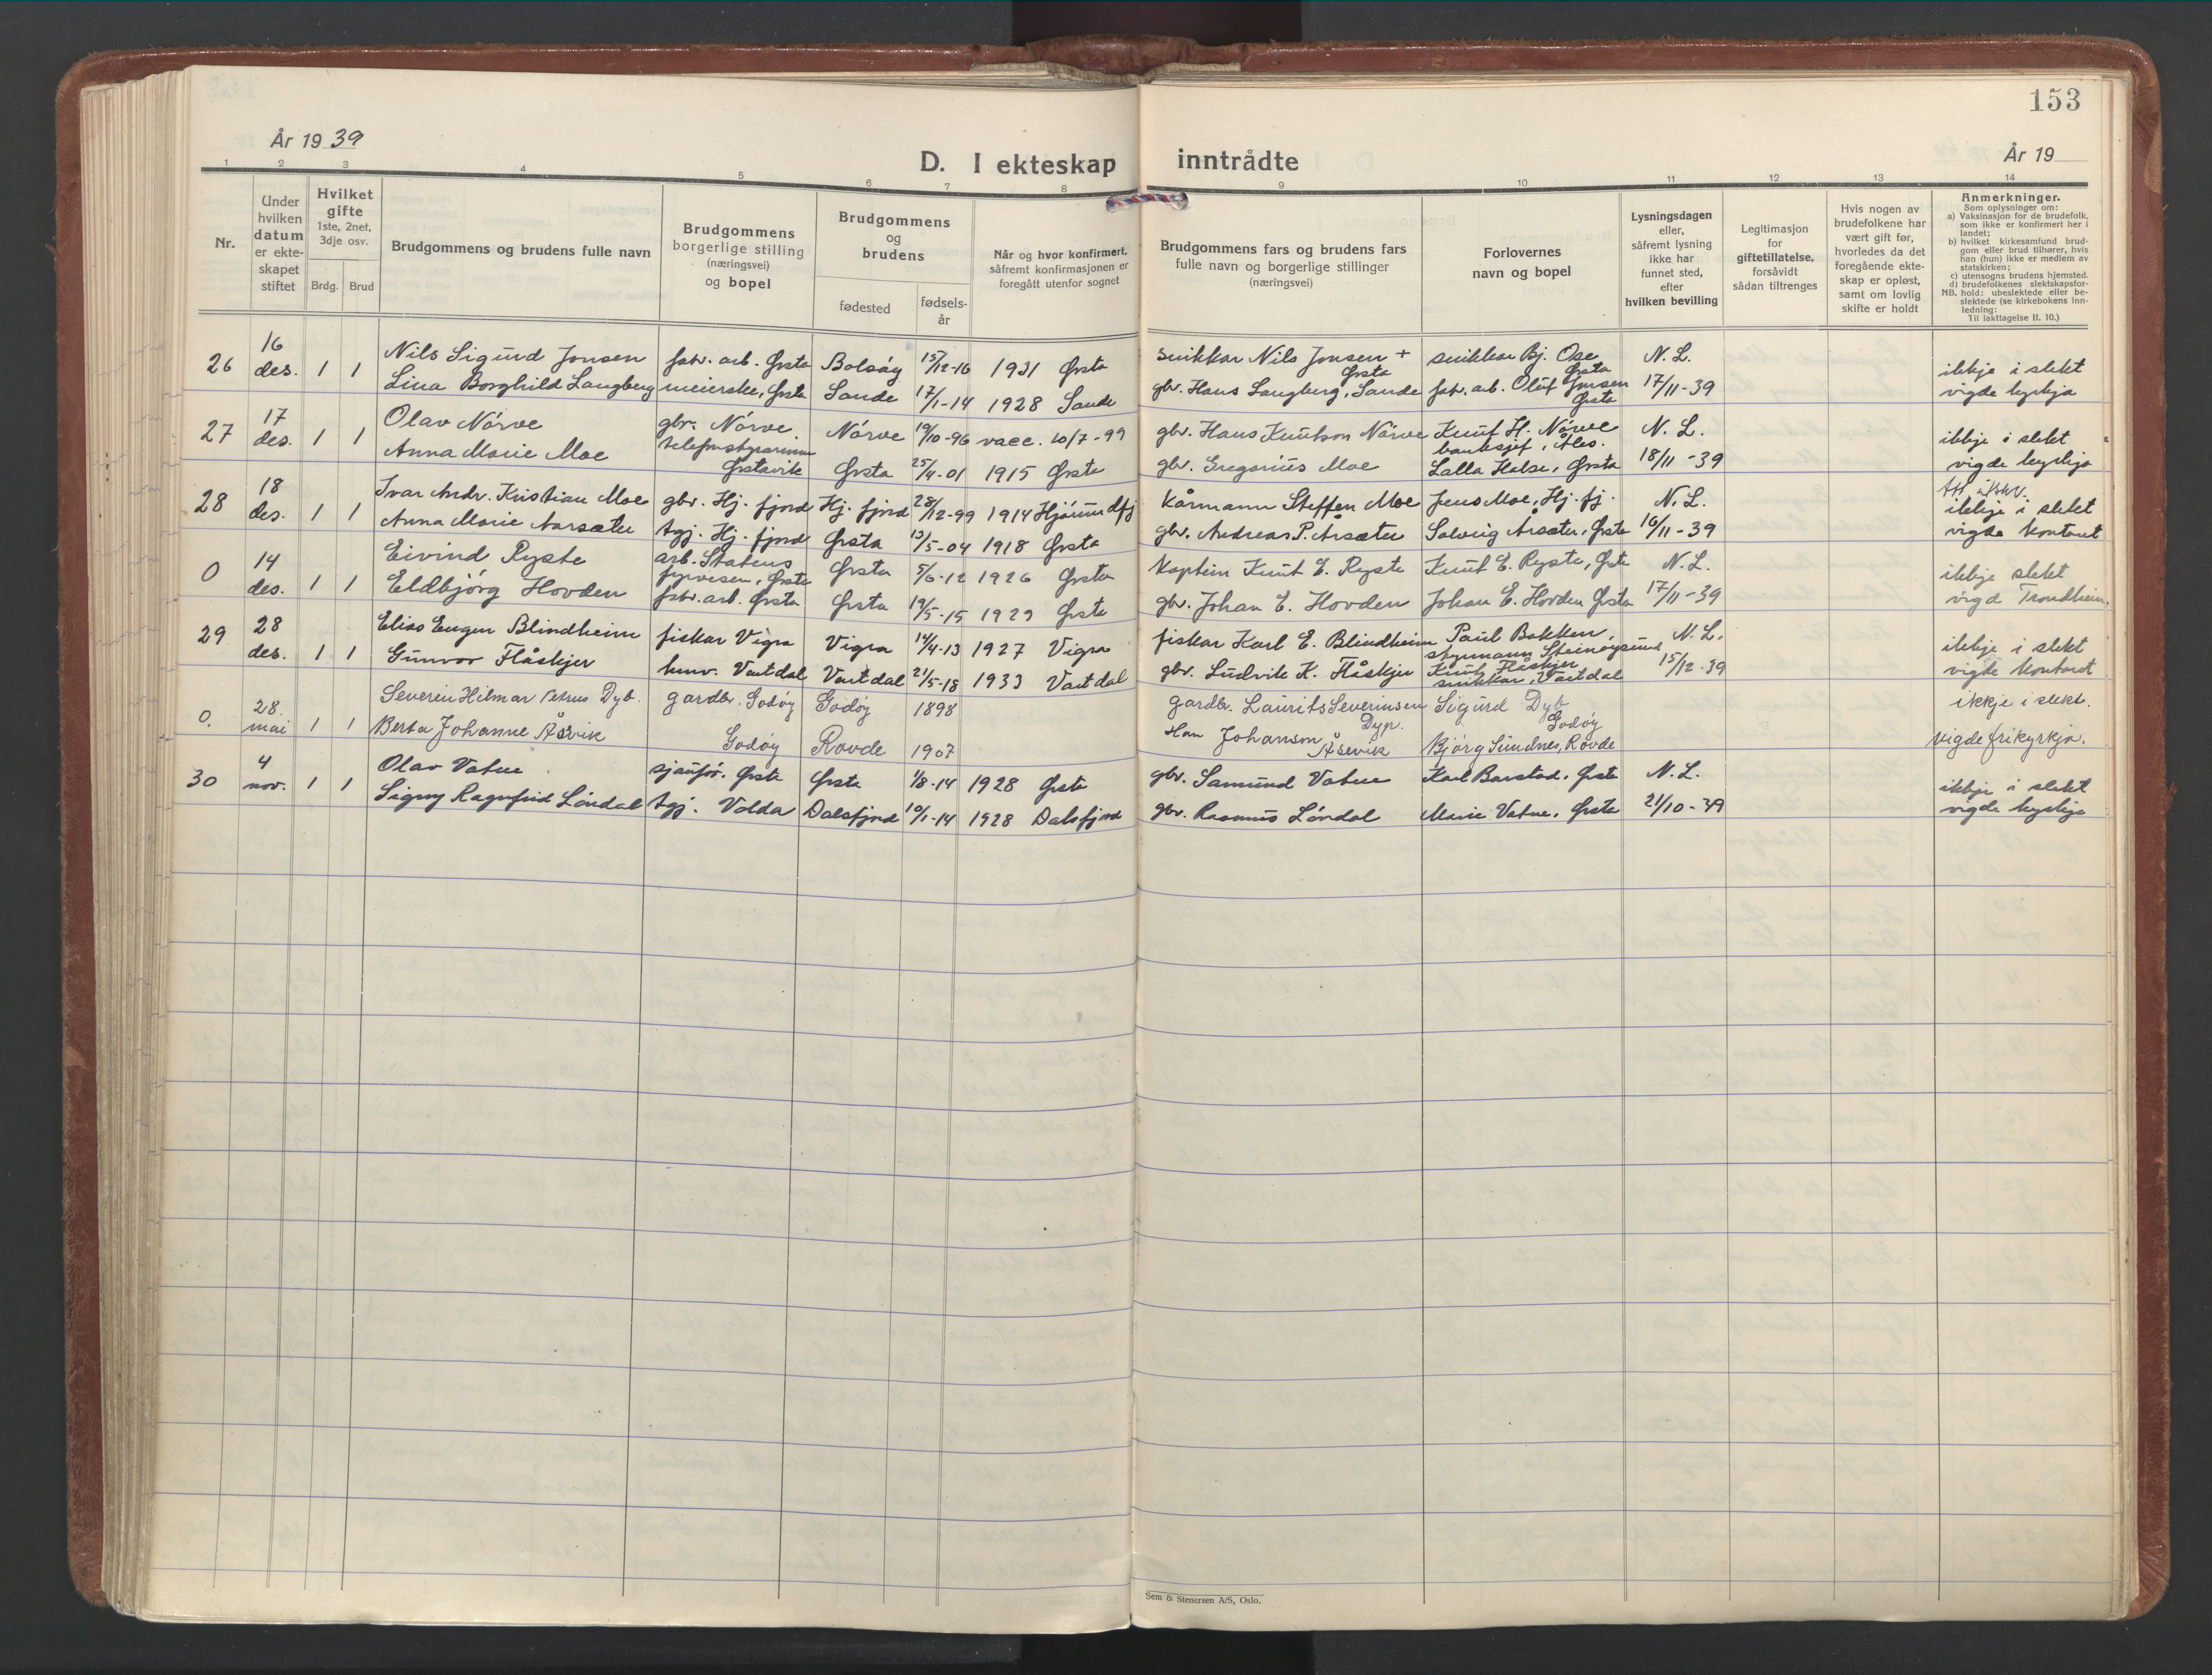 153
År 1939
D. I ekteskap inntrådte
År 19
1 2 3 4 5 6 7 8 9 10 11 12 13 14
Nr.
Under hvilken datum er ekteskapet stiftet
Hvilket gifte 1ste, 2net, 3dje osv.
Brdg. Brud
Brudgommens og brudens fulle navn
Brudgommens borgerlige stilling (næringsvei) og bopel
Brudgommens og brudens
fødested
fødselsår
Når og hvor konfirmert, såfremt konfirmasjonen er foregått utenfor sognet
Brudgommens fars og brudens fars fulle navn og borgerlige stillinger (næringsvei)
Forlovernes navn og bopel
Lysningsdagen eller, såfremt lysning ikke har funnet sted, efter hvilken bevilling
Legitimasjon for giftetillatelse, forsåvidt sådan tiltrenges
Hvis nogen av brudefolkene har vært gift før, hvorledes da det foregående ekteskap er opløst, samt om lovlig skifte er holdt
Anmerkninger.
Som oplysninger om:
a) Vaksinasjon for de brudefolk, som ikke er konfirmert her i landet;
b) hvilket kirkesamfund brudgom eller brud tilhører, hvis han (hun) ikke er medlem av statskirken;
c) utensogns brudens hjemsted.
d) brudefolkenes slektskapsforhold: ubeslektede eller beslektede (se kirkebokens innledning:
NB.
Til iakttagelse II. 10.)
26 16 des. 1 1 Nils Sigurd Jonsen fabr. arb. Ørsta Bolsøy 15/12-16 1931 Ørsta snikkar Nils Jonsen + Ørsta snikkar Bj. Ose Ørsta N. L. ikkje i slekt
Lina Borghild Langberg meierske, Ørsta Sande 17/1-14 1928 Sande gbr. Hans Langberg, Sande fabr. arb. Oluf Jonsen Ørsta 17/11-39 vigde kyrkja
27 17 des. 1 1 Olav Nørve gbr. Nørve Nørve 19/10-96 vacc. 10/7-99 gbr. Hans Knutson Nørve Knut H. Nørve banksjef, Åles. N. L. ikkje i slekt
Anna Marie Moe Ørstavik Ørsta 25/4-01 1915 Ørsta gbr. Gregorius Moe Lalla Halse, Ørsta 18/11-39 vigde kyrkja
28 18 des. 1 1 Ivar Andr. Kristian Moe gbr. Hj. fjord Hj. fjord 28/12-99 1914 Hjørundfj kårmann Steffen Moe Jens Moe, Hj. fj. N. L. ikkje i slekt
Anna Marie Aarsæter tgj. Hj. fjord Ørsta 13/5-04 1918 Ørsta gbr. Andreas P. Årsæter Solveig Årsæter, Ørsta 16/11-39 vigde kontoret
0 14 des. 1 1 Eivind Ryste arb. Statens fyrvesen, Ørsta Ørsta 5/6-12 1926 Ørsta kaptein Knut E. Ryste Knut E. Ryste, Ørsta N. L. ikkje slekt
Eldbjørg Hovden fabr. arb. Ørsta Ørsta 19/5-15 1929 Ørsta gbr. Johan E. Hovden Johan E. Hovden Ørsta 17/11-39 vigd Trondheim.
29 28 des. 1 1 Elias Eugen Blindheim fiskar Vigra Vigra 14/4-13 1927 Vigra fiskar Karl E. Blindheim Paul Bakken, styrmann Steinøysund N. L. ikkje i slekt
Gunvor Flåskjer husv. Vartdal Vartdal 21/5-18 1933 Vartdal gbr. Ludvik K. Flåskjer Knut Flåskjer snikkar, Vartdal 15/12-39 vigde kontoret
0. 28. mai 1 1 Severin Hilmar Petrus Dyb. gardbr. Godøy Godøy 1898 gardbr. Laurits Severinsen Dyp. Sigurd Dyb Godøy ikkje i slekt.
Berta Johanne Åsvik Godøy Rovde 1907 Johanson Åsevik Bjørg Sundnes, Rovde vigde frikyrkja.
30 4 nov. 1 1 Olav Vatne sjåfør. Ørsta Ørsta 1/8-14 1928 Ørsta gbr. Samund Vatne Karl Barstad, Ørsta N. L. ikkje i slekt
Signy Ragnfrid Løndal tgj. Volda Dalsfjord 10/1-14 1928 Dalsfjord gbr. Rasmus Løndal Marie Vatne, Ørsta 21/10-39 vigde kyrkja
Sem & Stenersen A/S, Oslo.